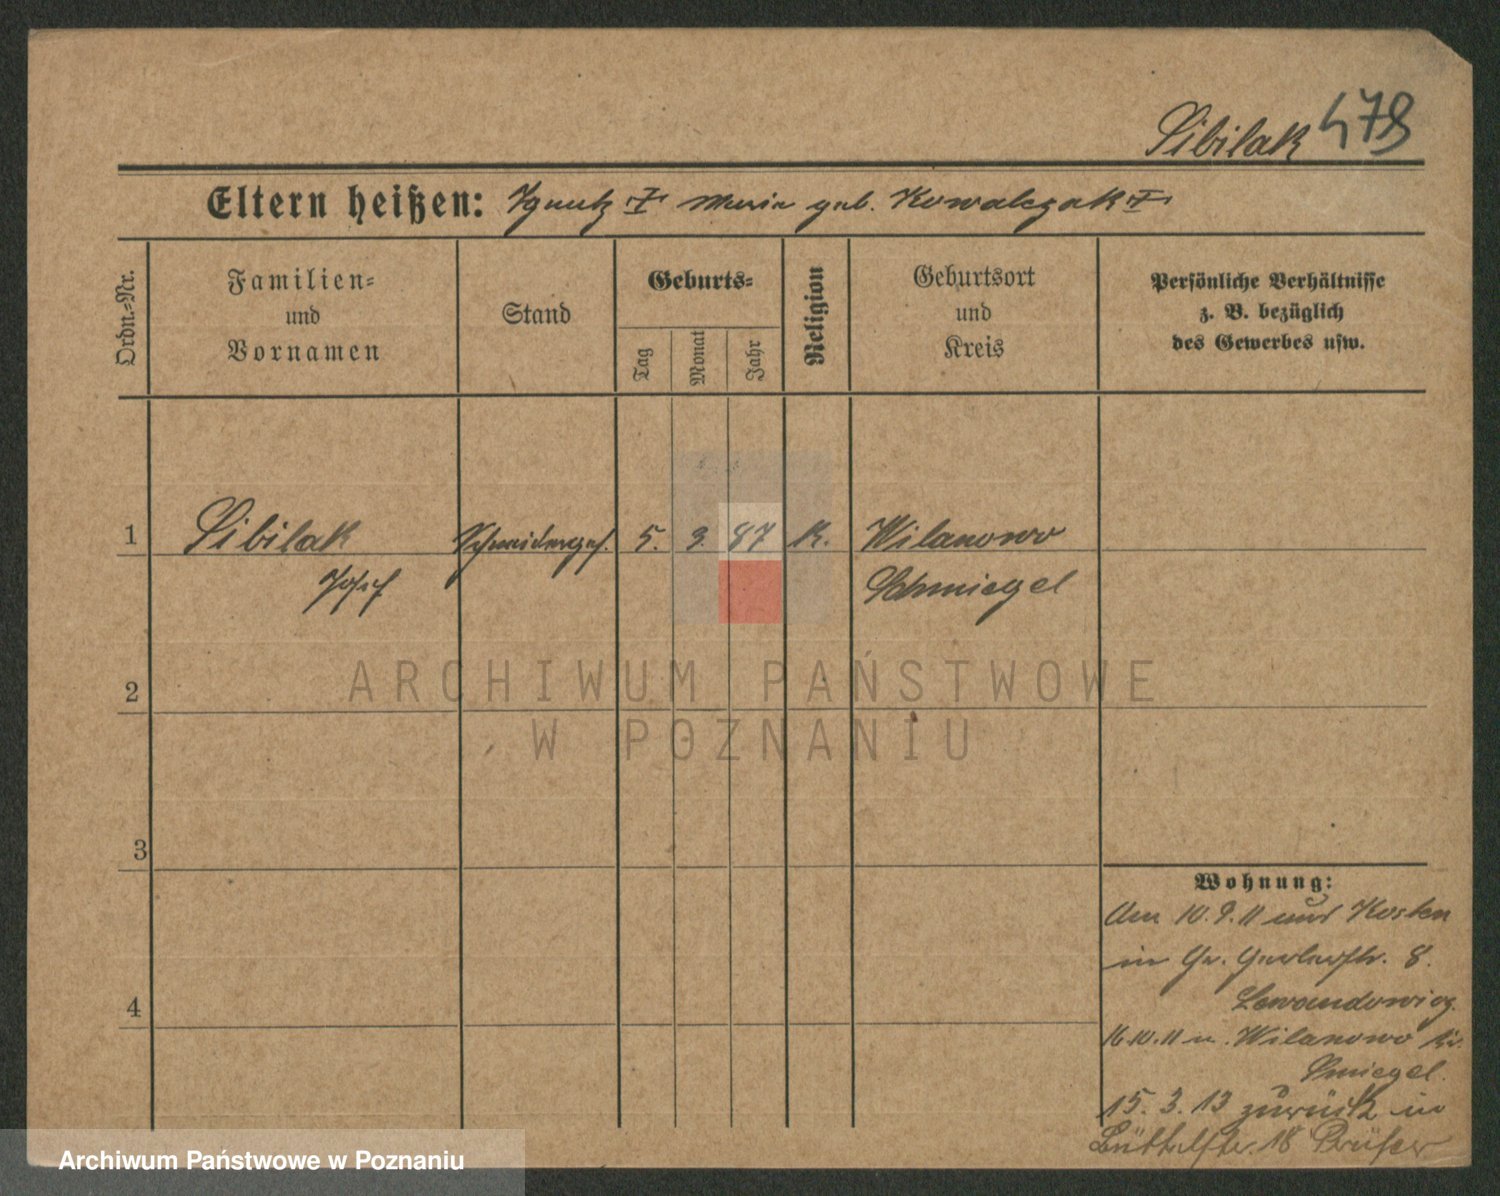 Sibilak 478
Eltern heißen: Ignatz Maria geb. Kowalczak
Ordn.-Nr.
Familien-
und
Vornamen
Stand
Geburts-
Tag
Monat
Jahr
Religion
Geburtsort
und
Kreis
Persönliche Verhältnisse
z. B. bezüglich
des Gewerbes usw.
1
Sibilak
Josef
Schneiderges.
5. 3. 87
K.
Wilanowo
Schmiegel
2
3
4
Wohnung:
Am 10.9.11 aus Kosten
in 8.
16.10.11 n. Wilanowo
Smiegel.
15.3.13 zurück in
18
ARCHIWUM PAŃSTWOWE
W POZNANIU
Archiwum Państwowe w Poznaniu